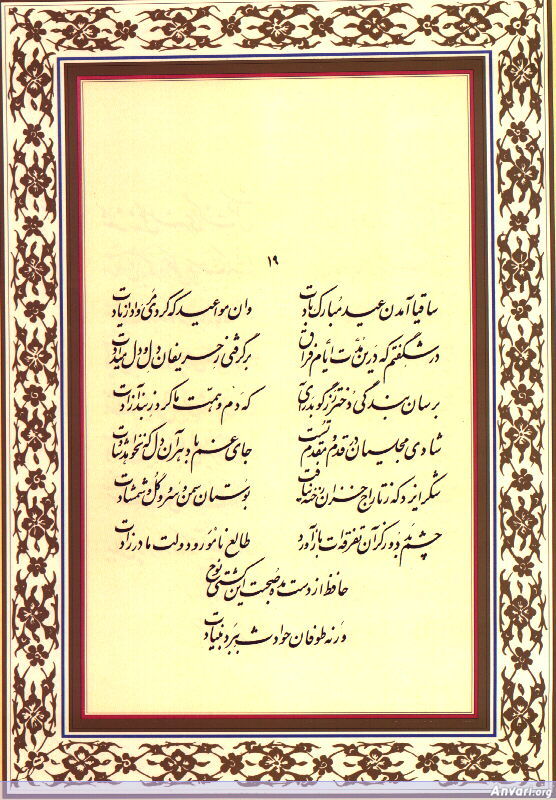 ۱۹
ساقیا آمدن عید مبارک بادت    وان مواعید که کردی مرواد از یادت
در شگفتم که درین مدّت ایّام فراق    برگرفتی ز حریفان دل و دل میدادت
برسان بندگی دختر رز گو بدر آی    که دم و همّت ما کرد ز بند آزادت
شادی مجلسیان در قدم و مقدم تست    جای غم باد هر آن دل که نخواهد شادت
شکر ایزد که ز تاراج خزان رخنه نیافت    بوستان سمن و سرو و گل و شمشادت
چشم بد دور کز آن تفرقه‌ات باز آورد    طالع نامور و دولت مادرزادت
حافظ از دست مده صحبت این کشتی نوح
ورنه طوفان حوادث ببرد بنیادت
Anvari.org